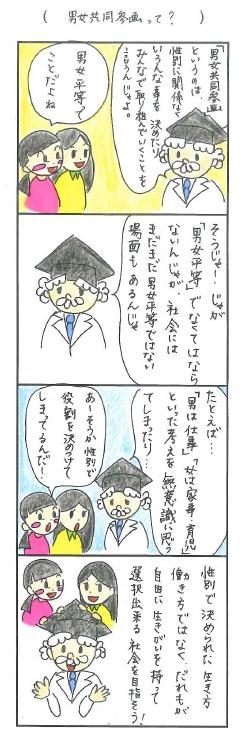 （ 男女共同参画って？ ）
「男女共同参画」
というのは
性別に関係なく
いろんな事を決めたり
みんなで取り組んでいくことを
言うんじゃよ。
男女平等って
ことだよね
そうじゃ！ じゃが
「男女平等」でなくてはなら
ないんじゃが 社会には
まだまだ男女平等ではない
場面もあるんじゃ
たとえば…
「男は仕事」「女は家事・育児」
といった考えを無意識に思っ
てしまったり…
あーそうか性別で
役割を決めつけて
しまってるんだ！
性別で決められた生き方
働き方ではなく、だれもが
自由に生きがいを持って
選択出来る社会を目指そう！